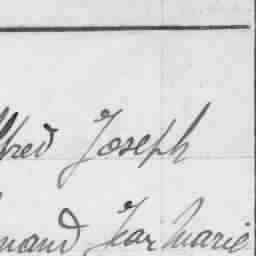 lfred Joseph
mand Jean Marie